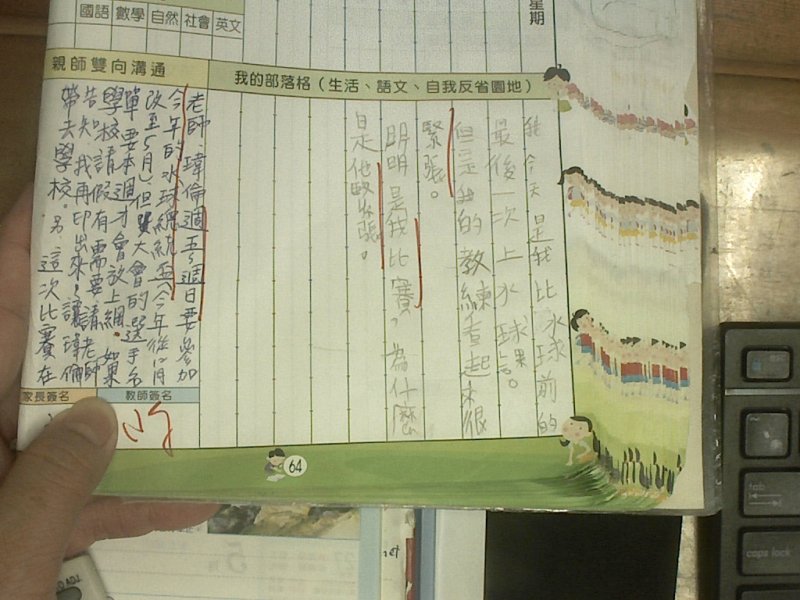 星期
國語 數學 自然 社會 英文
親師雙向溝通
我的部落格(生活、語文、自我反省園地)
我今天是我比水球前的
最後一次上水球課。
但是我的教練看起來很
緊張。
明明是我比賽,為什麼
是他緊張。
老師,瑋倫週五~週日要參加
今年的水球總統盃(今年從12月
改至5月)但大會的選手名
單要本週才會放上網,如果
學校請假有需要,請老師
告知,我再印出來,讓瑋倫
帶去學校。另,這次比賽在
家長簽名
教師簽名
64
tab
caps lock